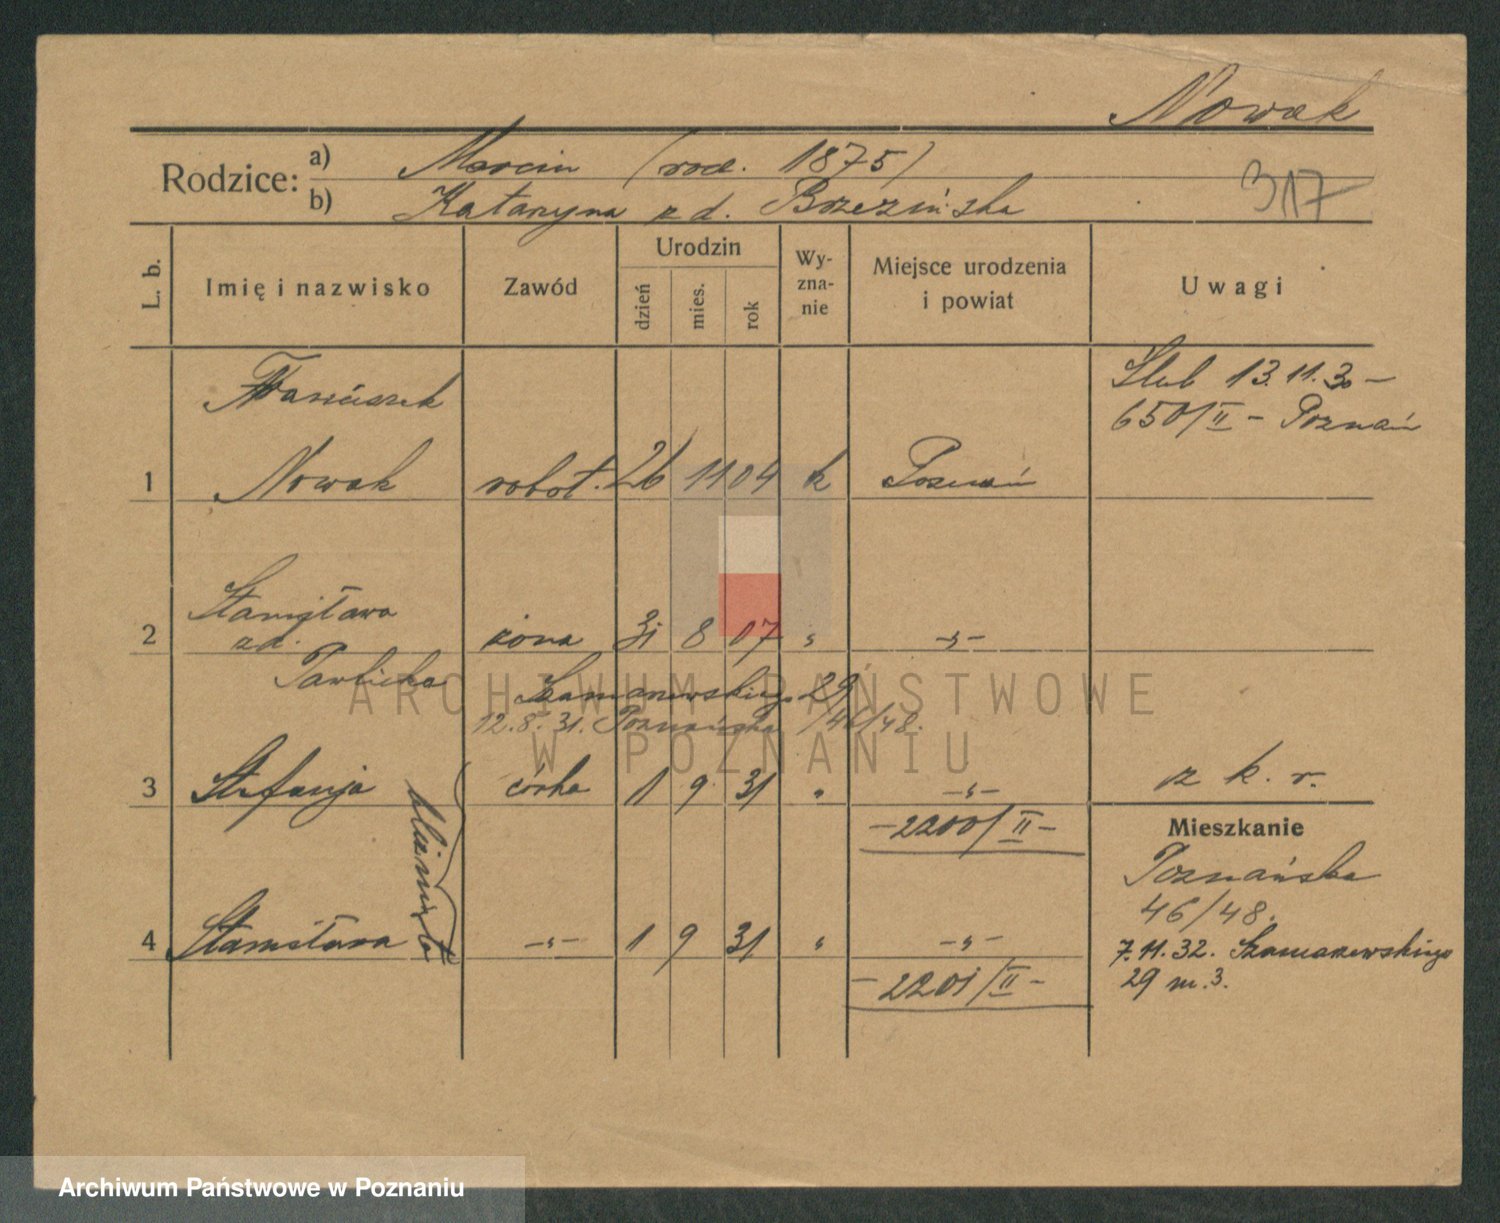 Nowak
Rodzice: a) Marcin (rod. 1875)
b) Katarzyna z d. Brzezińska
317
L. b.
Imię i nazwisko
Zawód
Urodzin
dzień
mies.
rok
Wy-
zna-
nie
Miejsce urodzenia
i powiat
Uwagi
Franciszek
Ślub 13.11.30 –
650/II – Poznań
1 Nowak robot. 26 11 04 k Poznań
Stanisława
2 zd. żona 31 8 07 „ -„-
Pawlicka
Szamarzewskiego 29
12.8.31. Poznańska 46/48.
3 Stefanja córka 1 9 31 „ -„- z k. r.
bliźnięta
– 2200/II –
Mieszkanie
Poznańska
46/48.
4 Stanisława -„- 1 9 31 „ -„-
7.11.32. Szamarzewskiego
29 m. 3.
– 2201/II –
ARCHIWUM PAŃSTWOWE
W POZNANIU
Archiwum Państwowe w Poznaniu